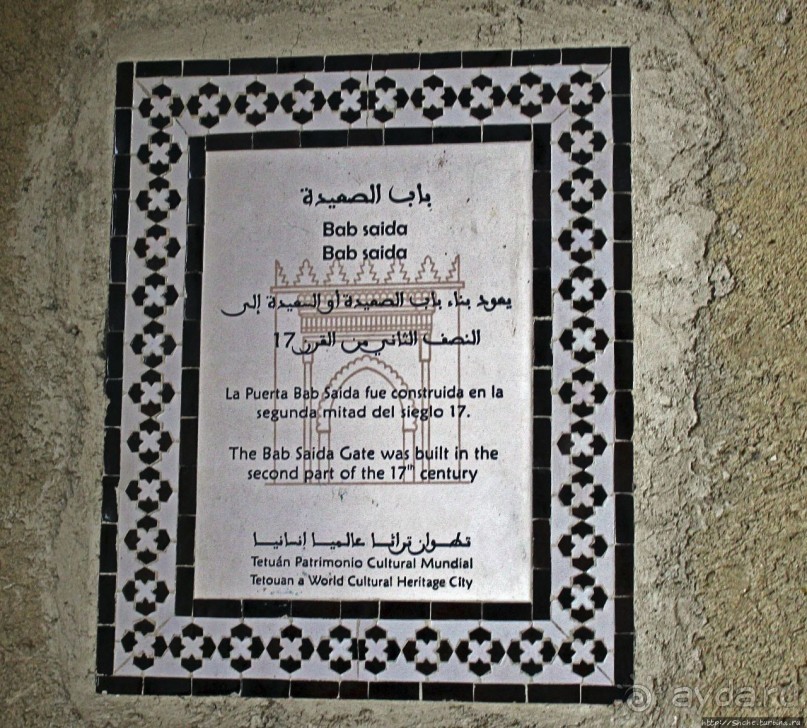 باب الصعيدة
Bab saida
Bab saida
يعود بناء باب الصعيدة أو السعيدة إلى
النصف الثاني من القرن 17
La Puerta Bab Saida fue construida en la
segunda mitad del sieglo 17.
The Bab Saida Gate was built in the
second part of the 17th century
تطوان تراثا عالميا إنسانيا
Tetuán Patrimonio Cultural Mundial
Tetouan a World Cultural Heritage City
ayda.ru